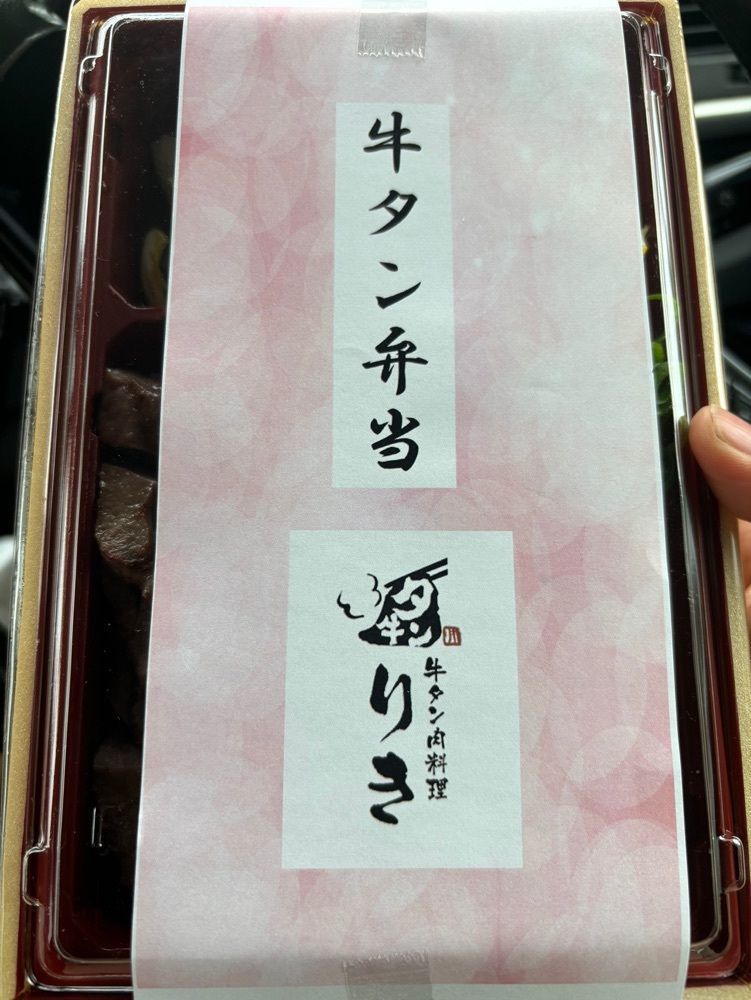 牛タン弁当
牛タン
りき
牛タン肉料理